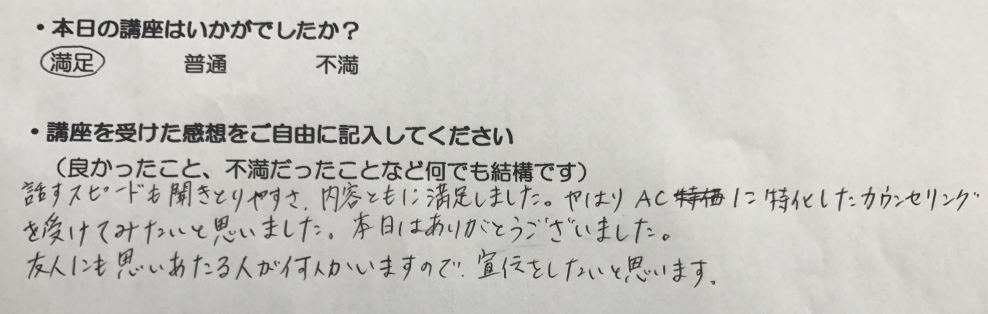 ・本日の講座はいかがでしたか？
満足　普通　不満
・講座を受けた感想をご自由に記入してください
（良かったこと、不満だったことなど何でも結構です）
話すスピードも聞きとりやすさ、内容ともに満足しました。やはりAC特価に特化したカウンセリング
を受けてみたいと思いました。本日はありがとうございました。
友人にも思いあたる人が何人かいますので、宣伝をしたいと思います。